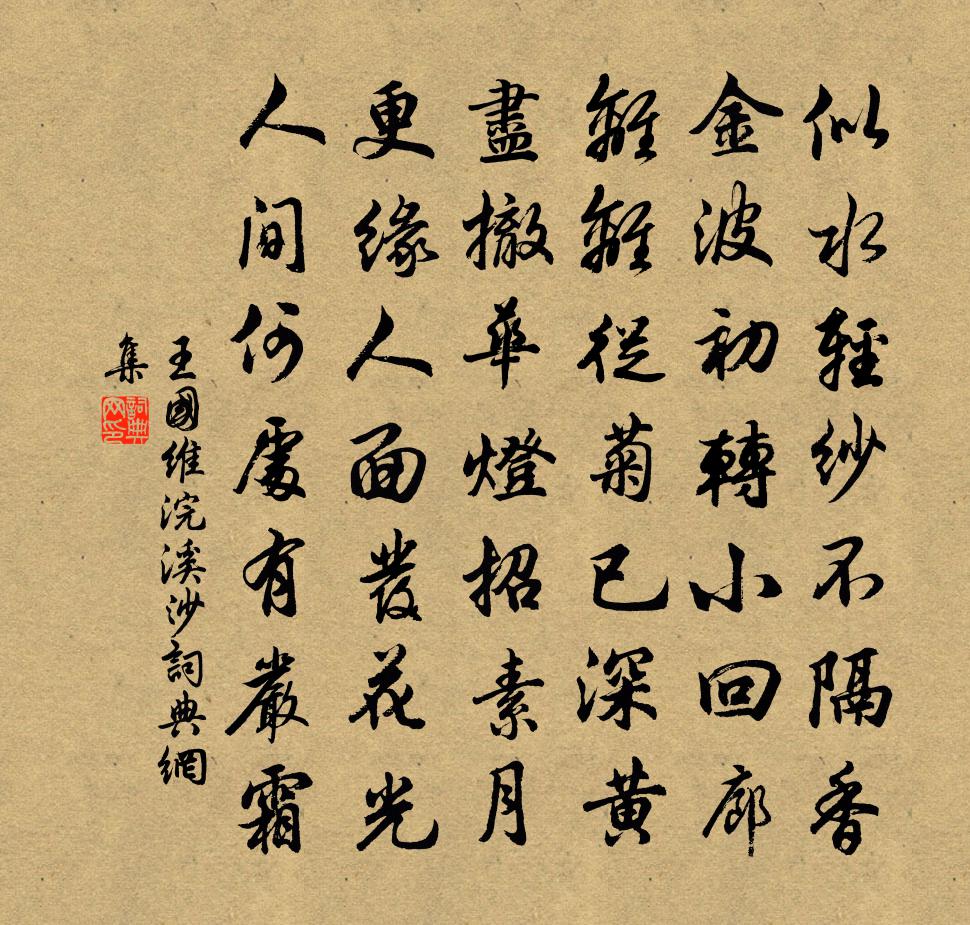 似水輕紗不隔香
金波初轉小回廊
離離從菊已深黃
盡撤華燈招素月
更緣人面發花光
人間何處有嚴霜
王國維浣溪沙詞典網
集
詞典
网印